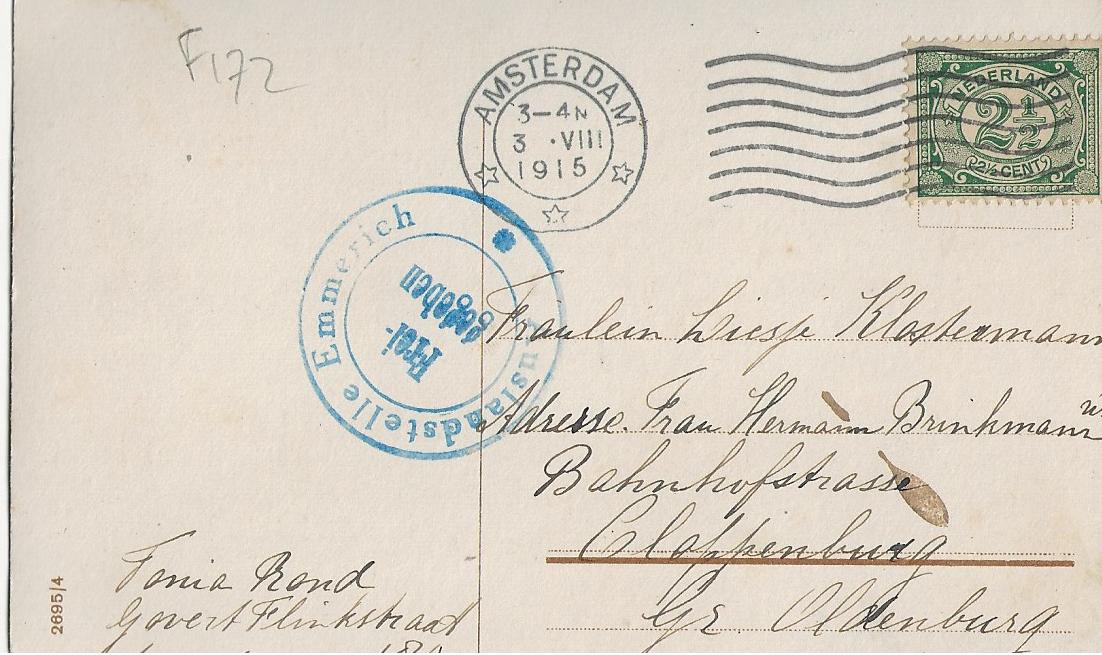 F172
AMSTERDAM
3-4N
3 .VIII
1915
NEDERLAND
2½
2½ CENT
Auslandstelle Emmerich
Frei-
gegeben
Fräulein Liesje Klostermann
Adresse. Frau Hermann Brinkmann
Bahnhofstrasse
Cloppenburg
Gr. Oldenburg
Tonia Rond
Govert Flinkstraat
2695/4